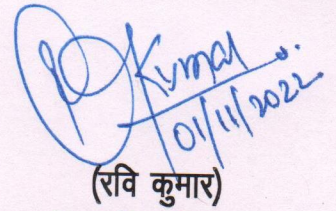 Kumar
01/11/2022
(रवि कुमार)